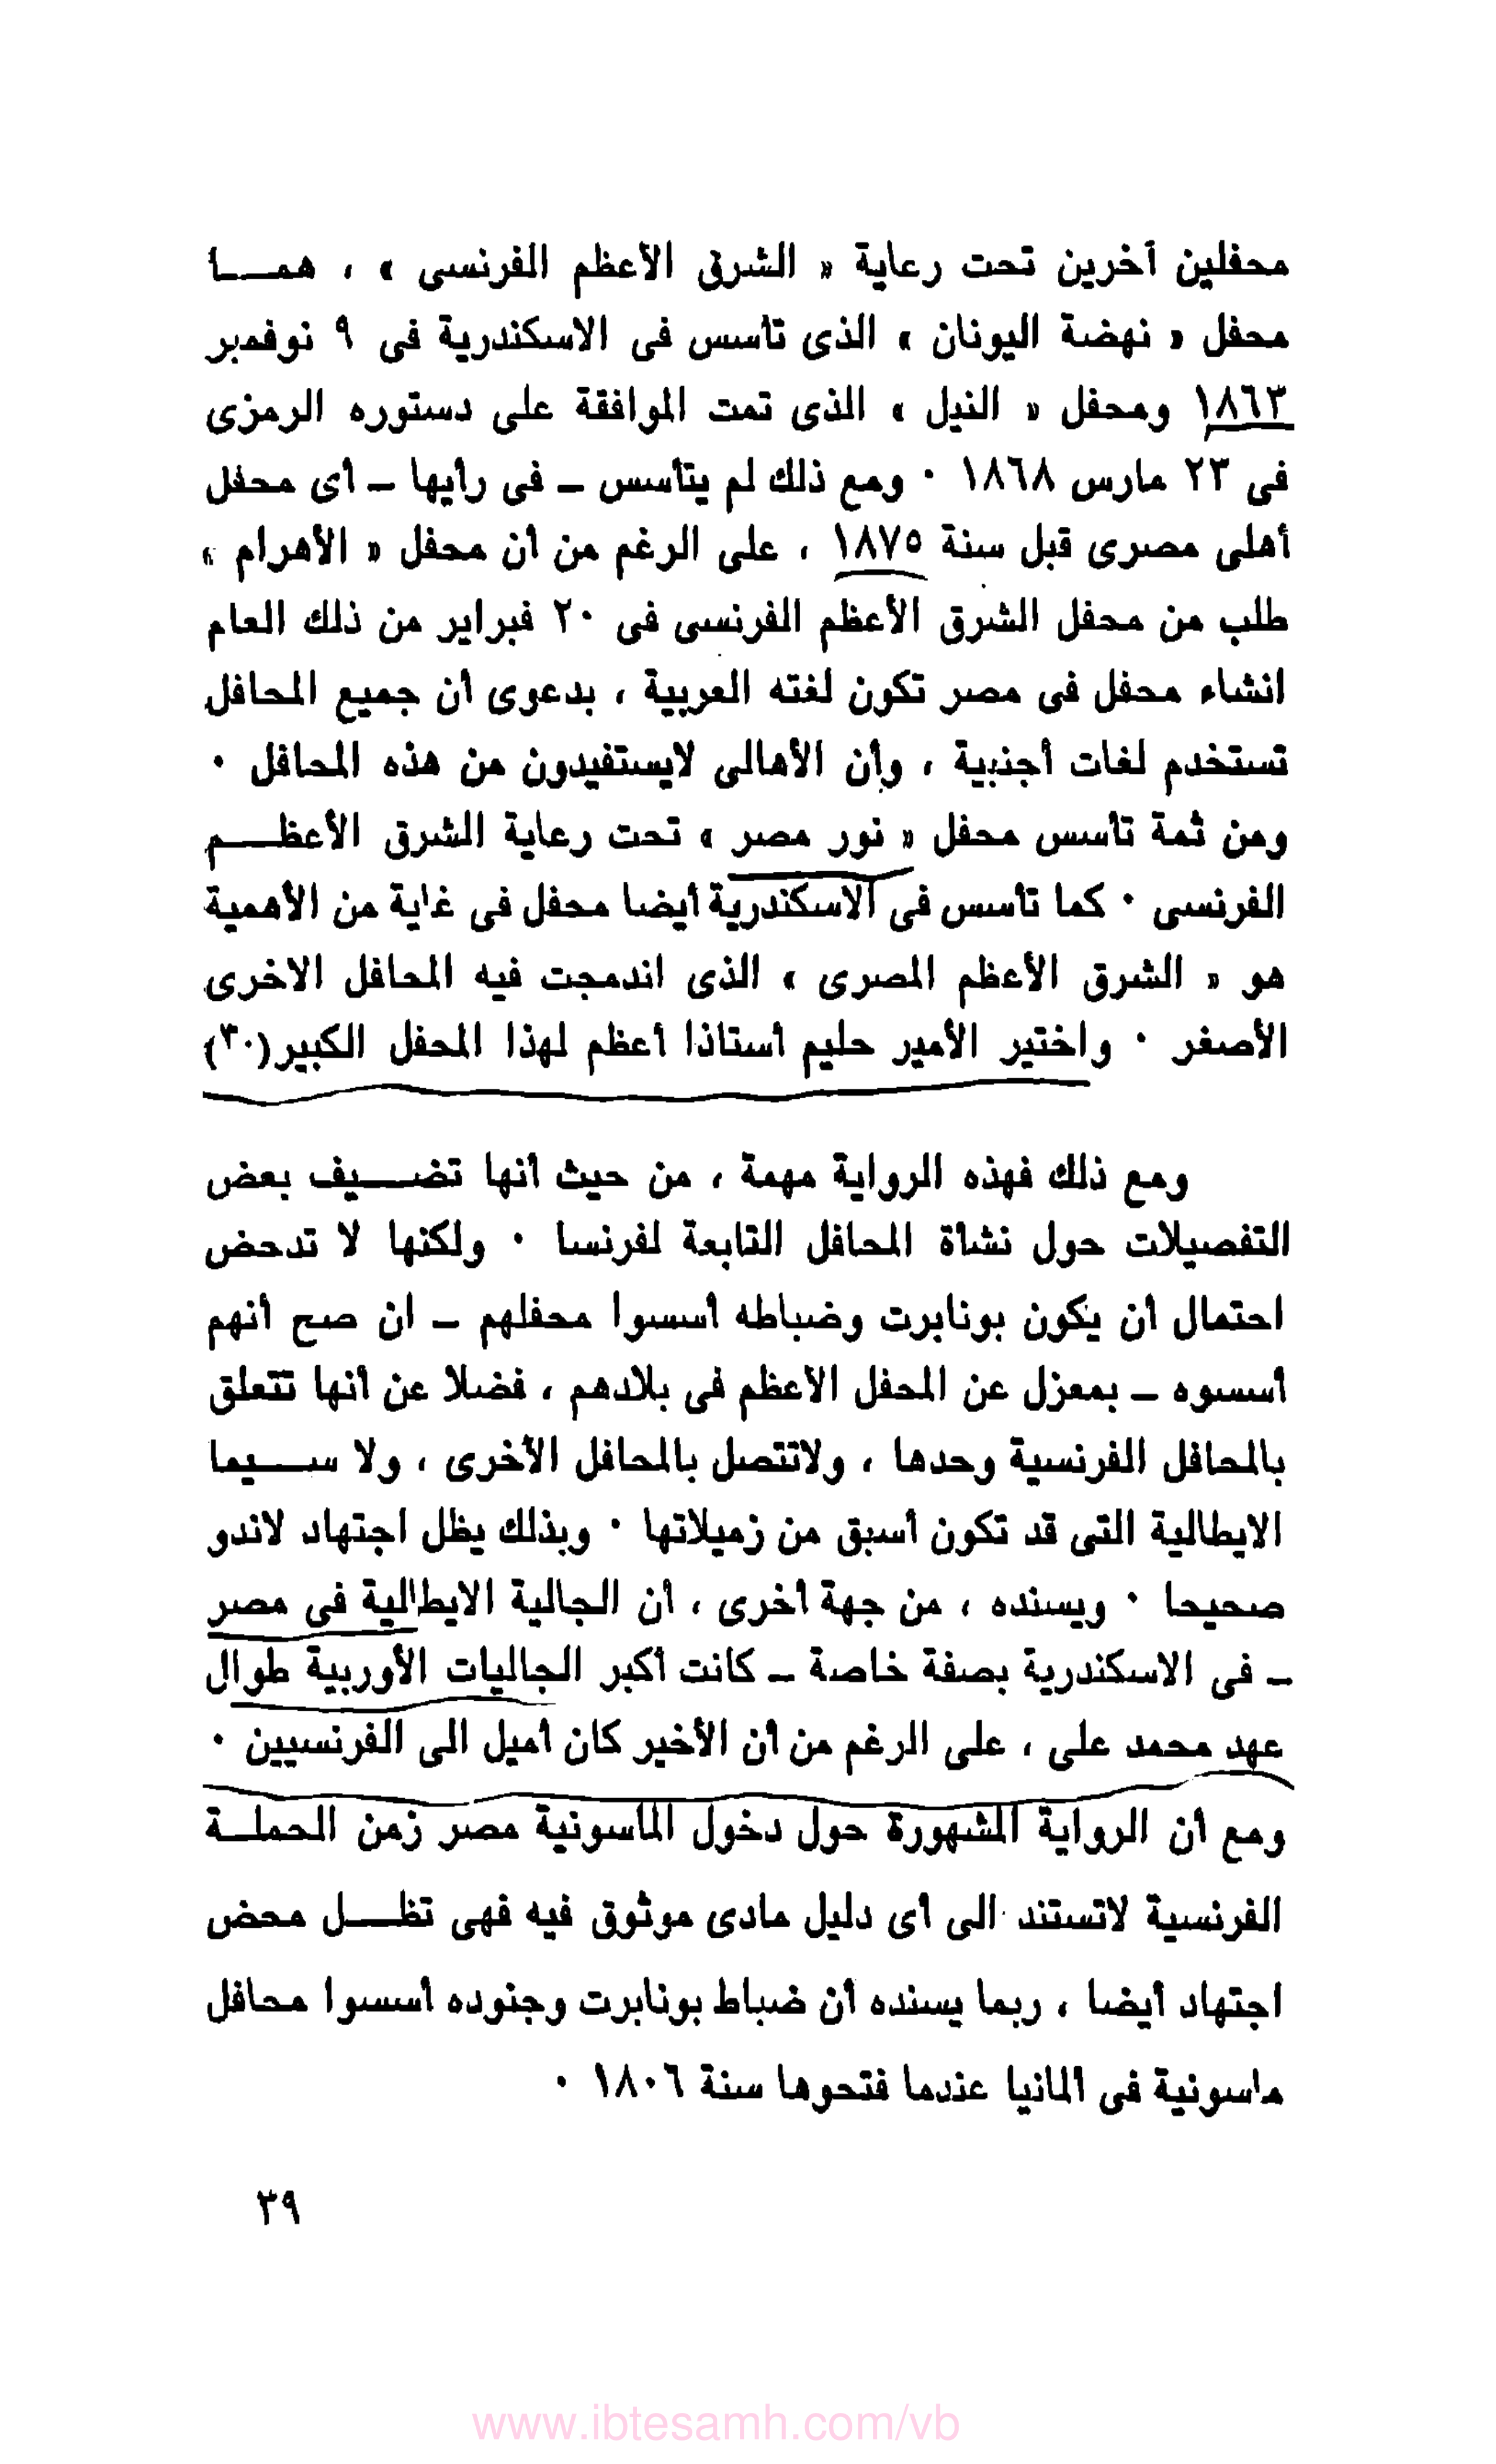 محفلين آخرين تحت رعاية « الشرق الأعظم الفرنسى » ، همـــا
محفل « نهضة اليونان » الذى تأسس فى الاسكندرية فى ٩ نوفمبر
١٨٦٣ ومحفل « النيل » الذى تمت الموافقة على دستوره الرمزى
فى ٢٣ مارس ١٨٦٨ · ومع ذلك لم يتأسس – فى رأيها – أى محفل
أهلى مصرى قبل سنة ١٨٧٥ ، على الرغم من أن محفل « الأهرام »
طلب من محفل الشرق الأعظم الفرنسى فى ٢٠ فبراير من ذلك العام
انشاء محفل فى مصر تكون لغته العربية ، بدعوى أن جميع المحافل
تستخدم لغات أجنبية ، وأن الأهالى لايستفيدون من هذه المحافل ·
ومن ثمة تأسس محفل « نور مصر » تحت رعاية الشرق الأعظــم
الفرنسى · كما تأسس فى الاسكندرية أيضا محفل فى غاية من الأهمية
هو « الشرق الأعظم المصرى » الذى اندمجت فيه المحافل الاخرى
الأصغر · واختير الأمير حليم أستاذا أعظم لهذا المحفل الكبير(٣٠)
ومع ذلك فهذه الرواية مهمة ، من حيث أنها تضــيف بعض
التفصيلات حول نشأة المحافل التابعة لفرنسا · ولكنها لا تدحض
احتمال أن يكون بونابرت وضباطه أسسوا محفلهم – ان صح أنهم
أسسوه – بمعزل عن المحفل الأعظم فى بلادهم ، فضلا عن أنها تتعلق
بالمحافل الفرنسية وحدها ، ولاتتصل بالمحافل الأخرى ، ولا ســيما
الايطالية التى قد تكون أسبق من زميلاتها · وبذلك يظل اجتهاد لاندو
صحيحا · ويسنده ، من جهة أخرى ، أن الجالية الايطالية فى مصر
– فى الاسكندرية بصفة خاصة – كانت أكبر الجاليات الأوربية طوال
عهد محمد على ، على الرغم من أن الأخير كان أميل الى الفرنسيين ·
ومع أن الرواية المشهورة حول دخول الماسونية مصر زمن الحملــة
الفرنسية لاتستند الى أى دليل مادى موثوق فيه فهى تظــل محض
اجتهاد أيضا ، ربما يسنده أن ضباط بونابرت وجنوده أسسوا محافل
ماسونية فى ألمانيا عندما فتحوها سنة ١٨٠٦ ·
٣٩
www.ibtesamh.com/vb